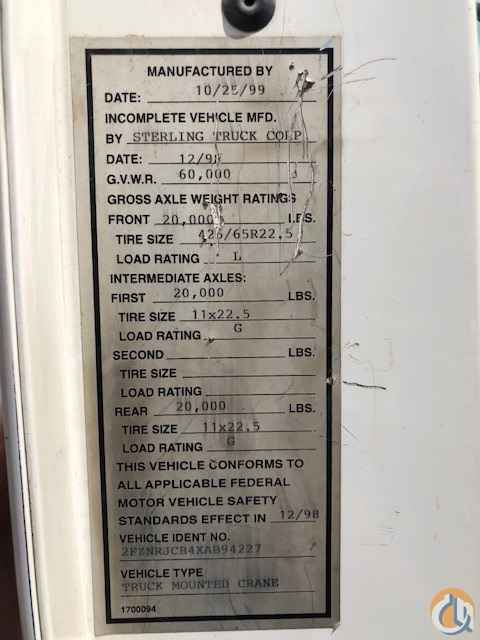 MANUFACTURED BY
DATE: 10/25/99
INCOMPLETE VEHICLE MFD.
BY STERLING TRUCK CORP
DATE: 12/98
G.V.W.R. 60,000
GROSS AXLE WEIGHT RATINGS
FRONT 20,000 LBS.
TIRE SIZE 425/65R22.5
LOAD RATING L
INTERMEDIATE AXLES:
FIRST 20,000 LBS.
TIRE SIZE 11x22.5
LOAD RATING G
SECOND LBS.
TIRE SIZE
LOAD RATING
REAR 20,000 LBS.
TIRE SIZE 11x22.5
LOAD RATING G
THIS VEHICLE CONFORMS TO
ALL APPLICABLE FEDERAL
MOTOR VEHICLE SAFETY
STANDARDS EFFECT IN 12/98
VEHICLE IDENT NO.
2FZNRJCB4XAB94227
VEHICLE TYPE
TRUCK MOUNTED CRANE
1700094